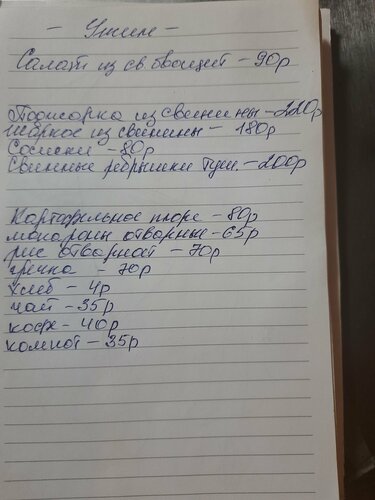 - Ужин -
Салат из св. овощей - 90р
Поджарка из свинины - 220р
Жаркое из свинины - 180р
Сосиски - 80р
Свинные ребрышки туш. - 200р
Картофельное пюре - 80р
макароны отварные - 65р
рис отварной - 70р
гречка - 70р
хлеб - 4р
чай - 35р
кофе - 40р
компот - 35р